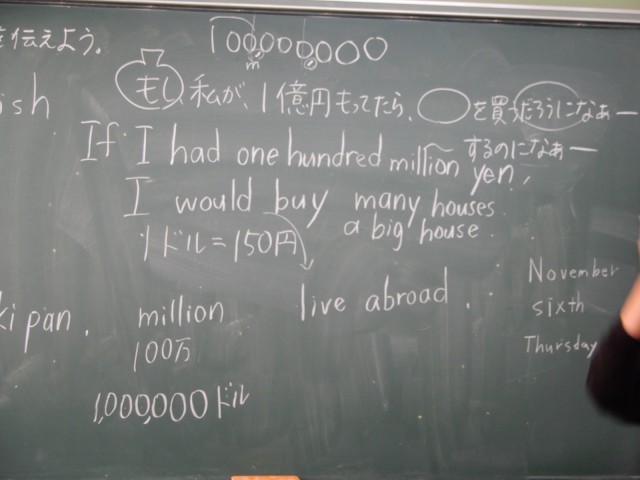 を伝えよう。
100,000,000
m
もし 私が、1億円もってたら、◯を買うだろうになぁー
するのになぁー
ish
If I had one hundred million yen,
I would buy many houses.
a big house.
1ドル=150円
live abroad.
November
sixth
Thursday
ki pan.
million
100万
1,000,000ドル